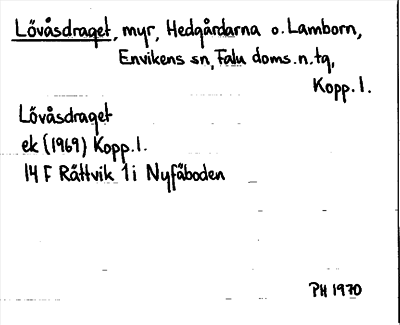 Lövåsdraget, myr, Hedgårdarna o. Lamborn,
Envikens sn, Falu doms.n.tg,
Kopp.l.
Lövåsdraget
ek (1969) Kopp.l.
14 F Rättvik 1 i Nyfäboden
PH 1970